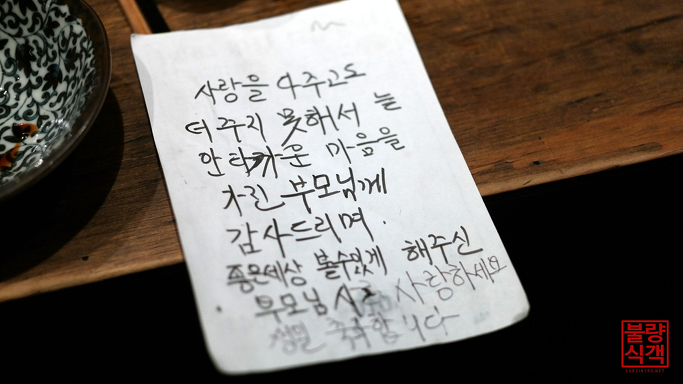 사랑을 다주고도
더 주지 못해서 늘
안타까운 마음을
가진 부모님께
감사드리며.
좋은세상 볼수있게 해주신
부모님 사랑하세요
축하합니다
불량
식객